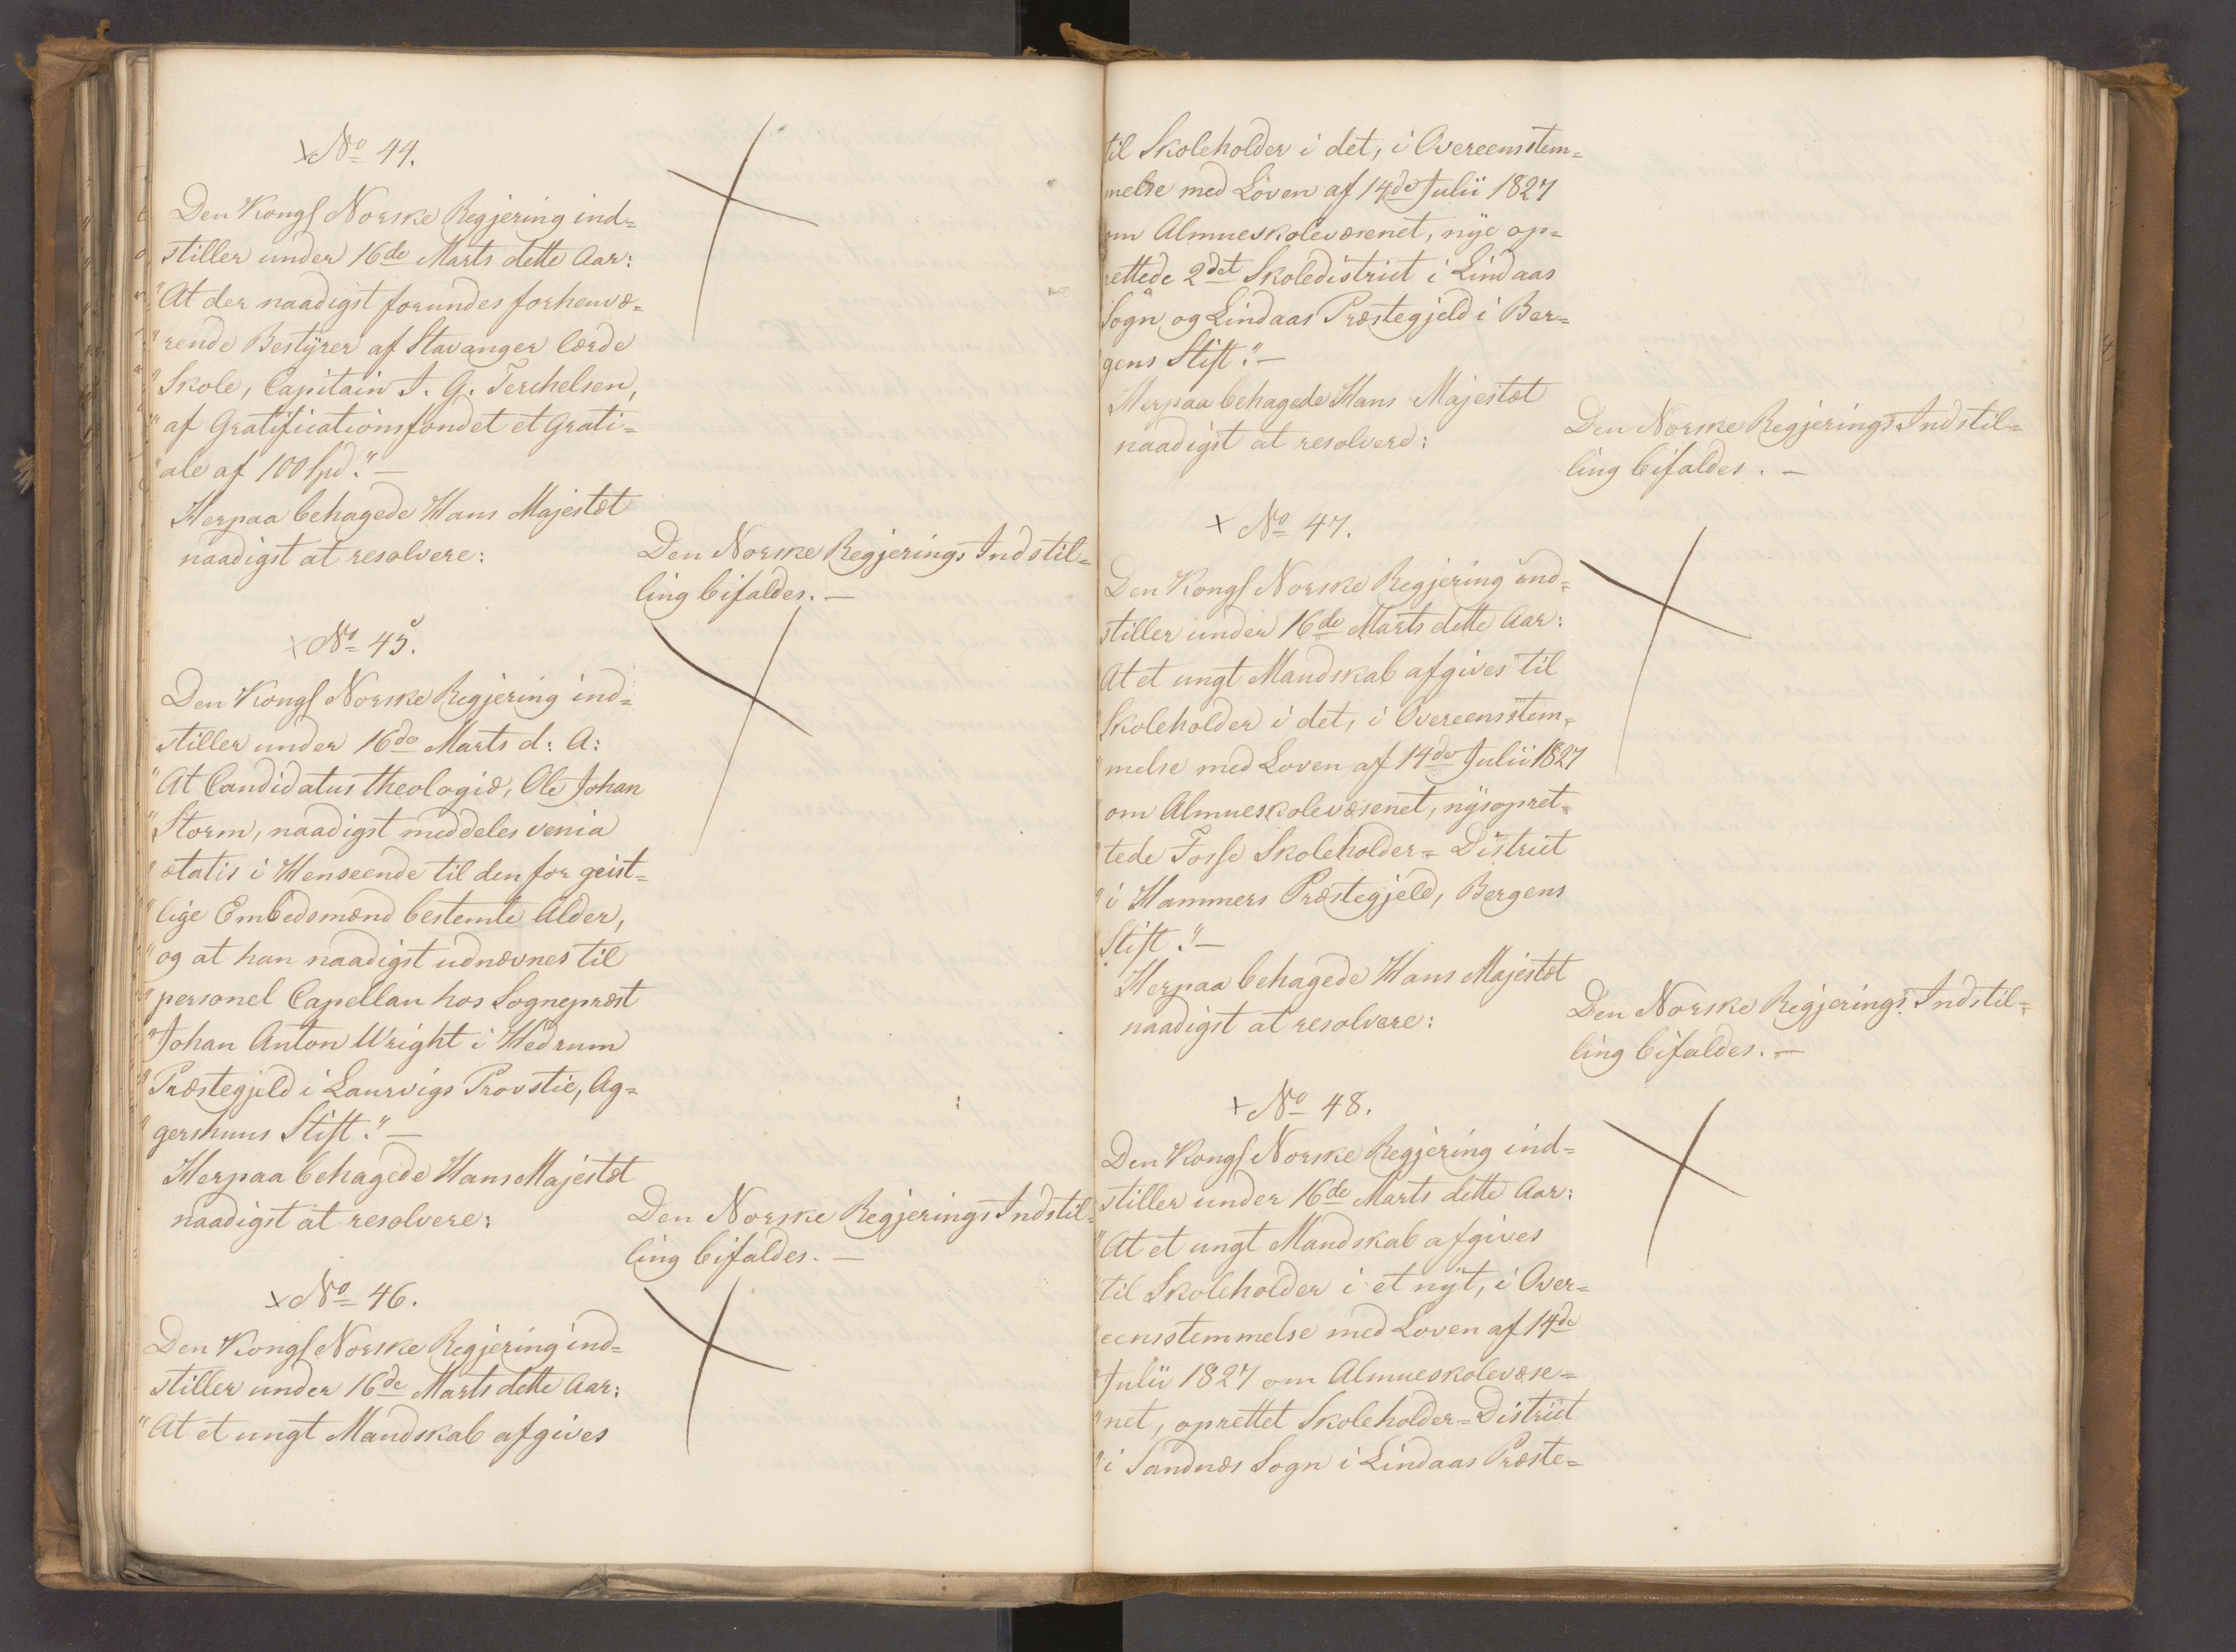 No 44.
Den Kongl Norske Regjering ind=
stiller under 16de Marts dette Aar:
"At der naadigst forundes forhenvæ=
"rende Bestyrer af Stavanger lærde
"Skole, Capitain J. G. Terchelsen,
"af Gratificationsfondet et Grati=
"ale af 100 Spd." —
Herpaa behagede Hans Majestæt
naadigst at resolvere:
Den Norske Regjerings Indstil=
ling bifaldes. —
No 45.
Den Kongl Norske Regjering ind=
stiller under 16de Marts d: A:
"At Candidatus theologiæ, Ole Johan
"Storm, naadigst meddeles venia
"ætatis i Henseende til den for geist=
"lige Embedsmænd bestemte Alder,
"og at han naadigst udnævnes til
"personel Capellan hos Sognepræst
"Johan Anton Wright i Hedrum
"Præstegjeld i Laurvigs Provstie, Ag=
"gershuus Stift." —
Herpaa behagede Hans Majestæt
naadigst at resolvere:
Den Norske Regjerings Indstil=
ling bifaldes. —
No 46.
Den Kongl Norske Regjering ind=
stiller under 16de Marts dette Aar:
"At et ungt Mandskab afgives
til Skoleholder i det, i Overeensstem=
melse med Loven af 14de Julii 1827
om Almueskolevæsenet, nye op=
rettede 2det Skoledistrict i Lindaas
Sogn og Lindaas Præstegjeld i Ber=
gens Stift." —
Herpaa behagede Hans Majestæt
naadigst at resolvere:
Den Norske Regjerings Indstil=
ling bifaldes. —
No 47.
Den Kongl Norske Regjering ind=
stiller under 16de Marts dette Aar:
At et ungt Mandskab afgives til
Skoleholder i det, i Overeensstem=
"melse med Loven af 14de Julii 1827
"om Almueskolevæsenet, nysopret=
"tede Fosse Skoleholder=District
"i Hammers Præstegjeld, Bergens
"Stift." —
Herpaa behagede Hans Majestæt
naadigst at resolvere:
Den Norske Regjerings Indstil=
ling bifaldes. —
No 48.
Den Kongl Norske Regjering ind=
stiller under 16de Marts dette Aar:
"At et ungt Mandskab afgives
"til Skoleholder i et nyt, i Over=
"eensstemmelse med Loven af 14de
"Julii 1827 om Almueskolevæse=
"net, oprettet Skoleholder=District
"i Sandnæs Sogn i Lindaas Præste=